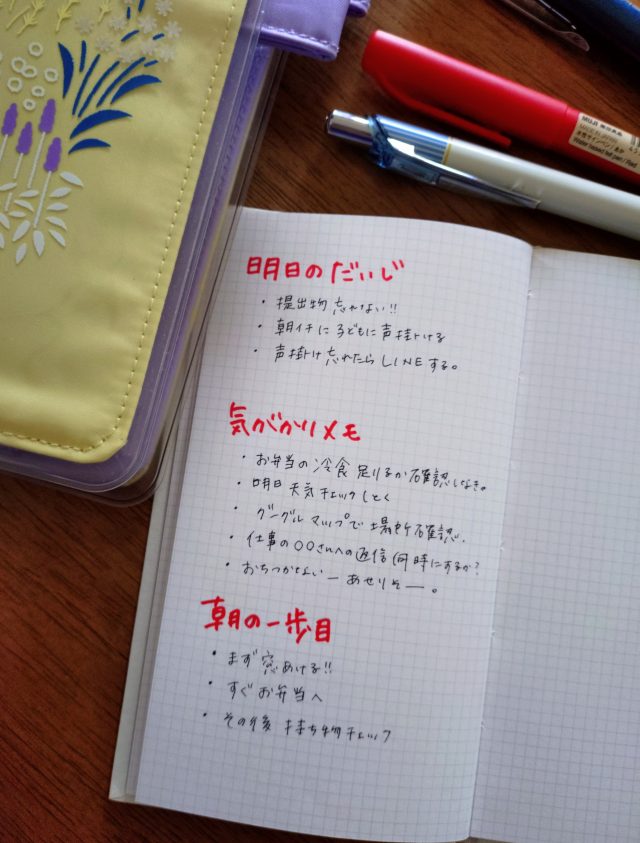 MUJ 無印良品
明日のだいじ
・提出物 忘れない!!
・朝イチに 子どもに声掛ける
・声掛け忘れたら LINEする。
気がかりメモ
・お弁当の冷食 足りるか確認しなき。
・明日 天気チェックしとく
・グーグルマップで場所確認.
・仕事の○○さんへの返信 何時にするか?
・おちつかないー あせりそー。
朝の一歩目
・まず窓あける!!
・すぐお弁当へ
・その後 持ち物チェック